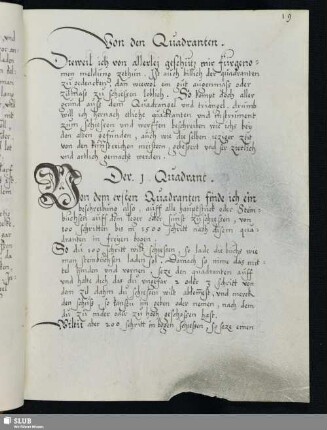 19
Von den Quadranten.
Dieweil ich von allerlej geschütz mir fürgeno-
men meldung zethun, So auch billich der quadranten
zu gedencken, dan wiewol ein gut augenmass oder
zu schiessen löblich, So kompt doch alles
grund auss dem Quadrangel und triangel, drumb
will ich hernach etliche quadranten und instrument
zum schiessen und werffen beschreiben wie ich bej
den alten gefunden, auch wie die selben jeziger zeit
von den kunstreichen meistern gebessert und ser zierlich
und artlich gemacht werden.
Der. 1. Quadrant.
Von dem ersten Quadranten finde ich ein
beschreibung also, auff alle oder Stein
büchsen auff dem leger oder sunst zu schiessen, von
100 schritten biss in 1500 schritt nach disem qua-
dranten in freiem bogen.
So du 100 schritt wilt schiessen, so lade die büchs wie
man steinbüchsen laden sol. Darnach so nime das mit-
tel hinden und vornen, seze den quadranten auff
und habe dich das du ungefar 2 oder 3 schritt von
dan zu dahin du schiessen wilt abkomest, und merck
den schuss, so kanstu im geben oder nemen, nach dem
du zu nider oder zu hoch geschossen hast.
Wiltu aber 200 schritt im bogen schiessen, So seze einen
SLUB